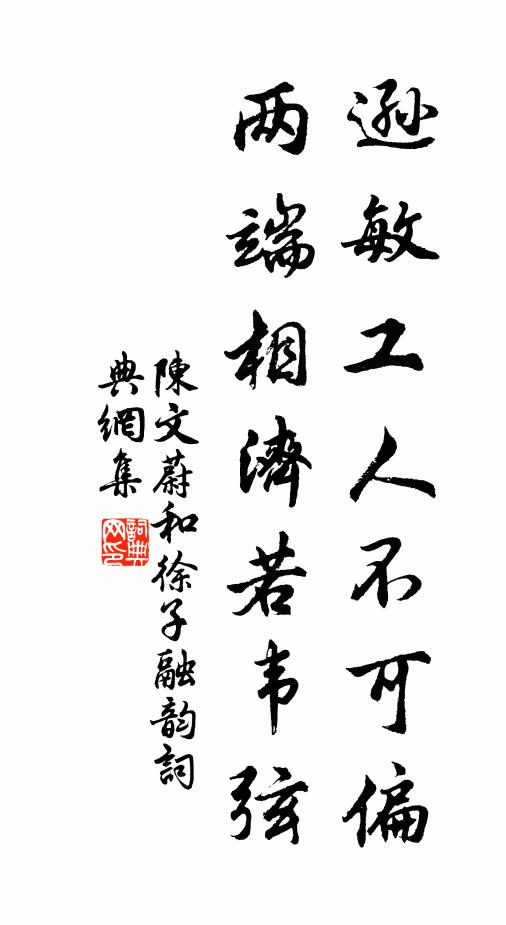 遜敏工人不可偏
两端相濟若韦弦
陳文蔚和徐子融韵詞
典網集
詞典
网印